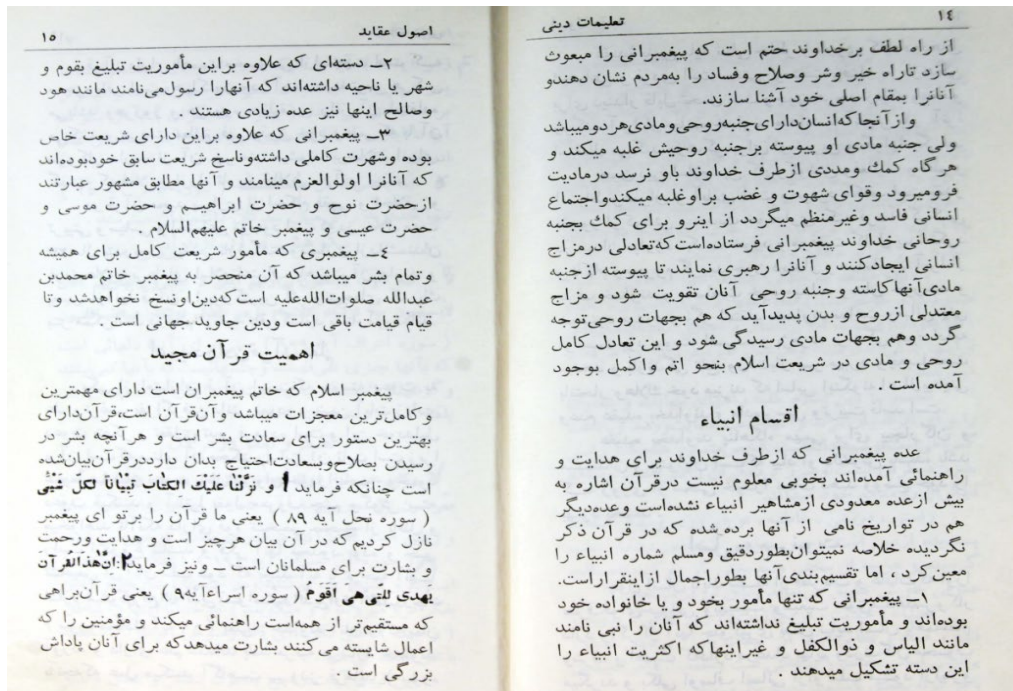 ١٤
تعلیمات دینی
از راه لطف برخداوند حتم است که پیغمبرانی را مبعوث
سازد تاراه خیر وشر وصلاح وفساد را بمردم نشان دهندو
آنانرا بمقام اصلی خود آشنا سازند.
وازآنجا که انسان دارای جنبه روحی ومادی هر دو میباشد
ولی جنبه مادی او پیوسته برجنبه روحیش غلبه میکند و
هرگاه کمك ومددی ازطرف خداوند باو نرسد درمادیت
فرومیرود وقوای شهوت و غضب براوغلبه میکندواجتماع
انسانی فاسد وغیرمنظم میگردد از اینرو برای کمك بجنبه
روحانی خداوند پیغمبرانی فرستاده است که تعادلی درمزاج
انسانی ایجادکنند و آنانرا رهبری نمایند تا پیوسته ازجنبه
مادی آنها کاسته وجنبه روحی آنان تقویت شود و مزاج
معتدلی ازروح و بدن پدیدآید که هم بجهات روحی توجه
گردد وهم بجهات مادی رسیدگی شود و این تعادل کامل
روحی و مادی در شریعت اسلام بنحو اتم واکمل بوجود
آمده است .
اقسام انبیاء
عده پیغمبرانی که ازطرف خداوند برای هدایت و
راهنمائی آمده‌اند بخوبی معلوم نیست درقرآن اشاره به
بیش ازعده معدودی ازمشاهیر انبیاء نشده است وعده دیگر
هم در تواریخ نامی از آنها برده شده که در قرآن ذکر
نگردیده خلاصه نمیتوان بطوردقیق ومسلم شماره انبیاء را
معین کرد ، اما تقسیم بندی آنها بطوراجمال ازاینقراراست.
١ـ پیغمبرانی که تنها مأمور بخود و یا خانواده خود
بوده‌اند و مأموریت تبلیغ نداشته‌اند که آنان را نبی نامند
مانند الیاس و ذوالکفل و غیراینهاکه اکثریت انبیاء را
این دسته تشکیل میدهند .
اصول عقاید
١٥
٢ـ دسته‌ای که علاوه براین مأموریت تبلیغ بقوم و
شهر یا ناحیه داشته‌اند که آنهارا رسول می‌نامند مانند هود
وصالح اینها نیز عده زیادی هستند .
٣ـ پیغمبرانی که علاوه براین دارای شریعت خاص
بوده وشهرت کاملی داشته وناسخ شریعت سابق خودبوده‌اند
که آنانرا اولوالعزم مینامند و آنها مطابق مشهور عبارتند
ازحضرت نوح و حضرت ابراهیم و حضرت موسی و
حضرت عیسی و پیغمبر خاتم علیهم‌السلام .
٤ـ پیغمبری که مأمور شریعت کامل برای همیشه
وتمام بشر میباشد که آن منحصر به پیغمبر خاتم محمدبن
عبدالله صلوات‌الله‌علیه است که دین اونسخ نخواهدشد وتا
قیام قیامت باقی است ودین جاوید جهانی است .
اهمیت قرآن مجید
پیغمبر اسلام که خاتم پیغمبران است دارای مهمترین
و کامل‌ترین معجزات میباشد وآن قرآن است،قرآن دارای
بهترین دستور برای سعادت بشر است و هرآنچه بشر در
رسیدن بصلاح وبسعادت احتیاج بدان دارد درقرآن بیان شده
است چنانکه فرماید ١ و نَزَّلْنا عَلَیْكَ الْکِتابَ تِبْیاناً لِکُلِّ شَیْئٍ
( سوره نحل آیه ٨٩ ) یعنی ما قرآن را برتو ای پیغمبر
نازل کردیم که در آن بیان هرچیز است و هدایت ورحمت
و بشارت برای مسلمانان است ـ ونیز فرماید ٢:اِنَّ هٰذَا الْقُرآنَ
یَهْدی لِلَّتی هِیَ اَقْوَمُ ( سوره اسراء آیه ٩ ) یعنی قرآن براهی
که مستقیم‌تر از همه است راهنمائی میکند و مؤمنین را که
اعمال شایسته می کنند بشارت میدهد که برای آنان پاداش
بزرگی است .